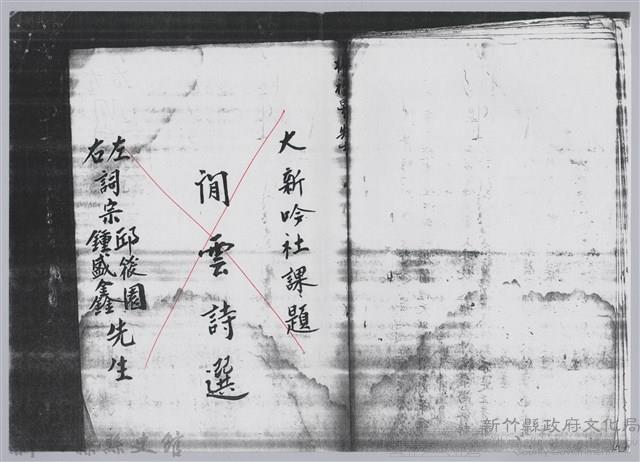 大新吟社課題
閒雲詩選
左右詞宗邱筱園鍾盛鑫先生
新竹縣政府文化局
縣史館